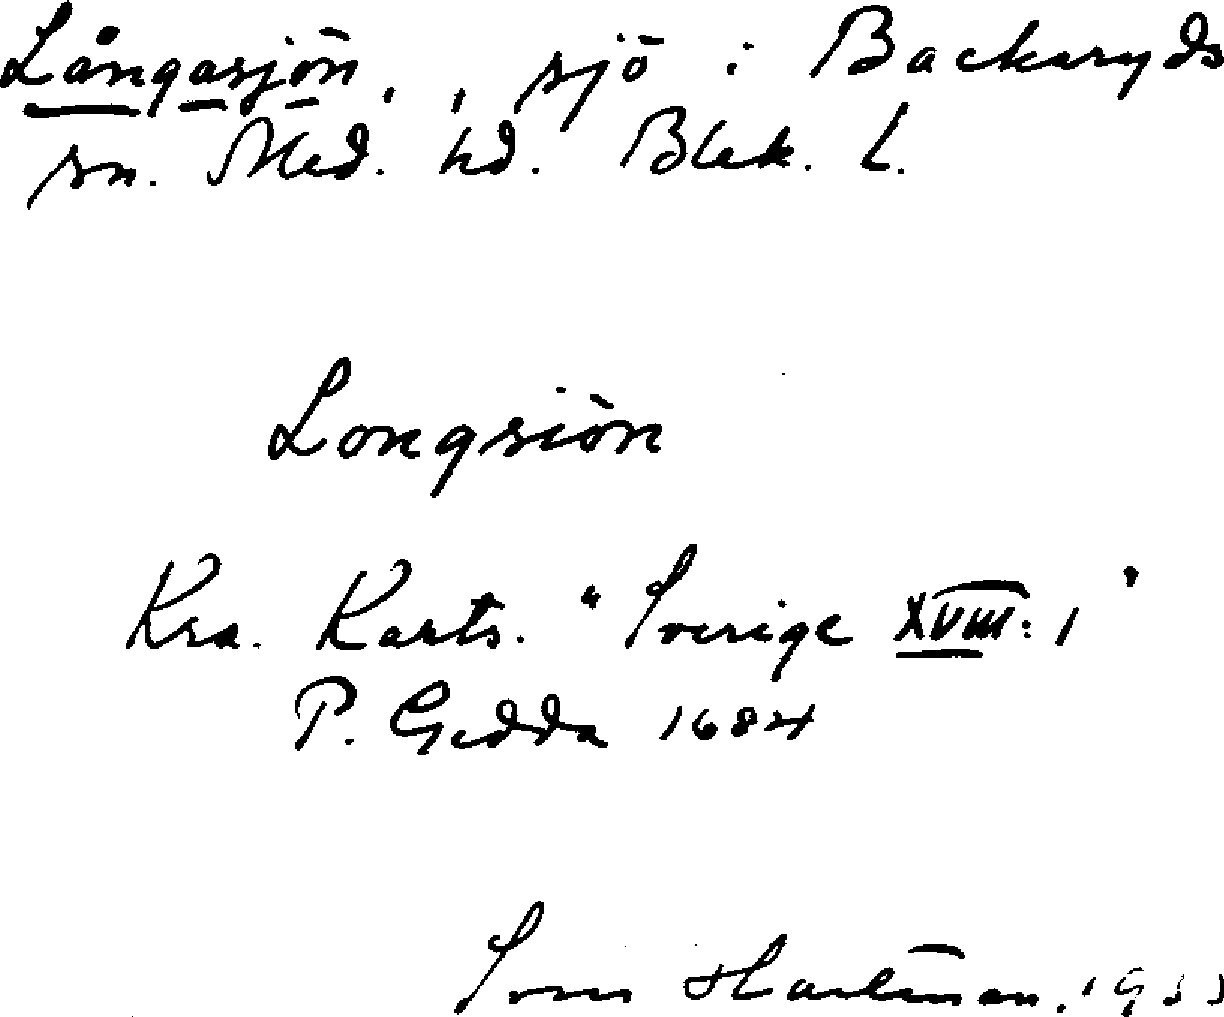 Långasjön, , sjö i Backaryds
sn. Med. hd. Blek. L.
Longsiön
Kra. Karts. "Sverige XVIII: 1"
P. Gedda 1684
Sven Hartman. 19